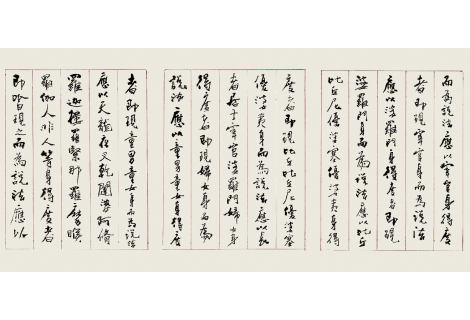 而為說法應以宰官身得度
者即現宰官身而為說法
應以婆羅門身得度者即現
婆羅門身而為說法應以比丘
比丘尼優婆塞優婆夷身得
度者即現比丘比丘尼優婆塞
優婆夷身而為說法應以長
者居士宰官婆羅門婦女身
得度者即現婦女身而為
說法應以童男童女身得度
者即現童男童女身而為說法
應以天龍夜叉乾闥婆阿修
羅迦樓羅緊那羅摩睺
羅伽人非人等身得度者
即皆現之而為說法應以